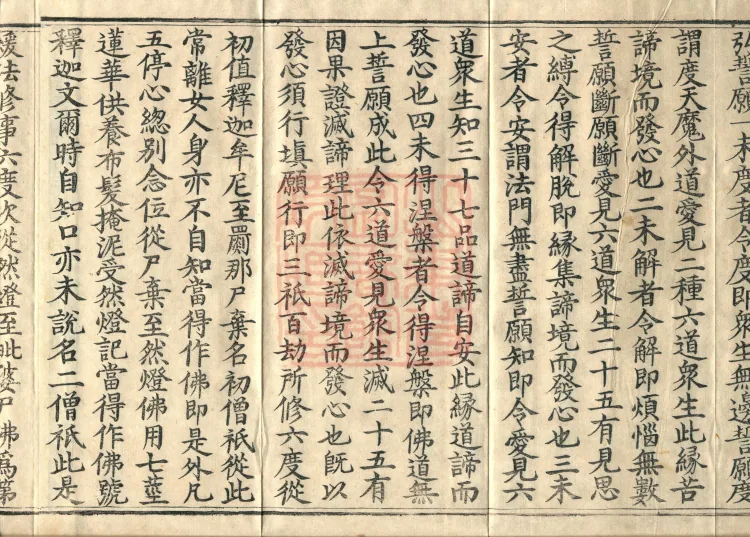 弘誓願一未度者令度即衆生無邊誓願度
謂度天魔外道愛見二種六道衆生此緣苦
諦境而發心也二未解者令解即煩惱無數
誓願斷願斷愛見六道衆生二十五有見思
之縛令得解脫即緣集諦境而發心也三未
安者令安謂法門無盡誓願知即令愛見六
道衆生知三十七品道諦自安此緣道諦而
發心也四未得涅槃者令得涅槃即佛道無
上誓願成此令六道愛見衆生滅二十五有
因果證滅諦理此依滅諦境而發心也旣以
發心須行塡願行即三祇百劫所修六度從
初值釋迦牟尼至罽那尸棄名初僧祇從此
常離女人身亦不自知當得作佛即是外凡
五停心總別念位從尸棄至然燈佛用七莖
蓮華供養布髮掩泥受然燈記當得作佛號
釋迦文爾時自知口亦未說名二僧祇此是
煖法修事六度次從然燈至毗婆尸佛爲第